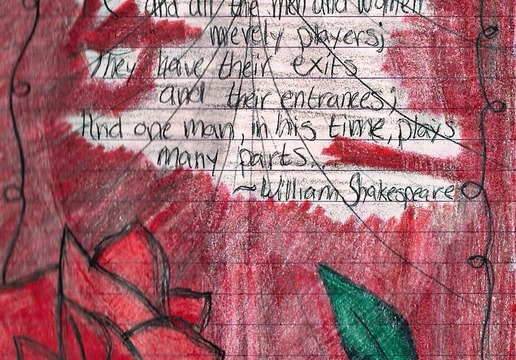 and all the men and women
merely players;
They have their exits
and their entrances;
And one man, in his time, plays
many parts.
~William Shakespeare